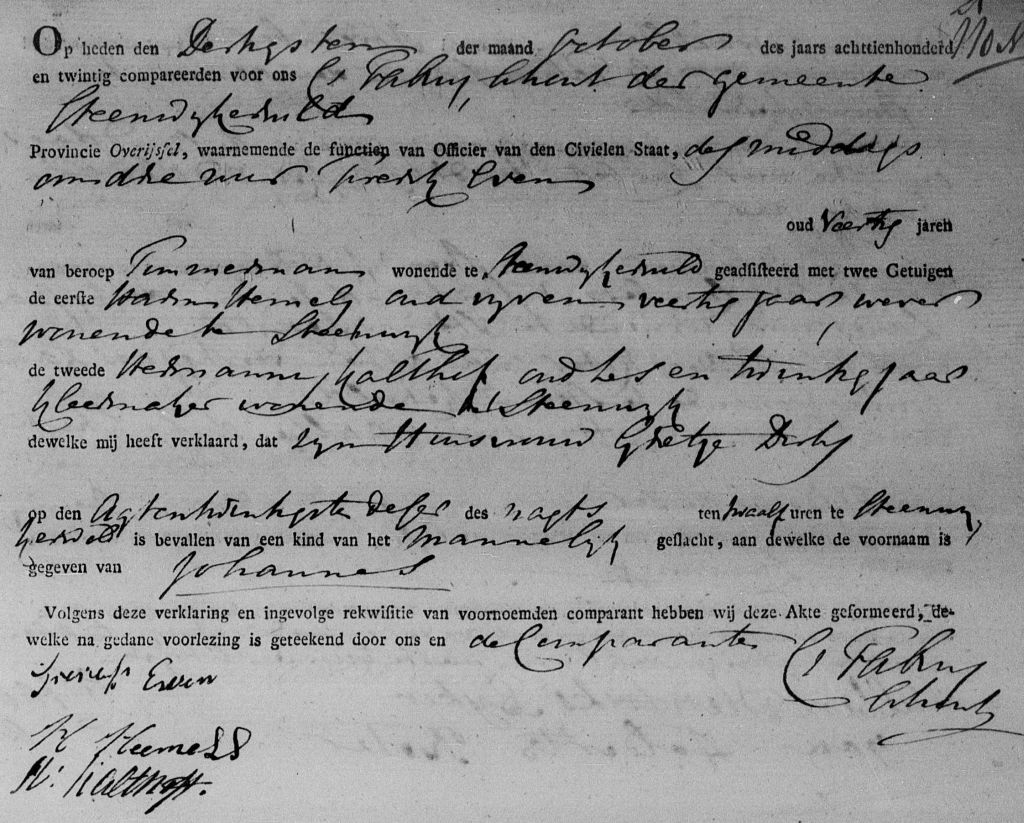 Op heden den Dertigsten der maand October des jaars achttienhonderd
en twintig compareerden voor ons Cs Fabry, Schout der gemeente
Steenwykerwold
Provincie Overijssel, waarnemende de functien van Officier van den Civielen Staat, des middags
om drie uur Even
oud Veertig jaren
van beroep Timmerman wonende te Steenwykerwold geadsisteerd met twee Getuigen
de eerste Harm Hemels oud vyf en veertig jaar, wever
wonende te Steenwyk
de tweede Hermannus Kalthof oud ses en twintig jaar
Kleermaker wonende te Steenwyk
dewelke mij heeft verklaard, dat zyn Huisvrouw Grietje Derks
op den Agtentwintigste deser des nagts ten twaalf uren te Steenwy
kerwold is bevallen van een kind van het Mannelyk geslacht, aan dewelke de voornaam is
gegeven van Johannes
Volgens deze verklaring en ingevolge rekwisitie van voornoemden comparant hebben wij deze Akte geformeerd, de-
welke na gedane voorlezing is geteekend door ons en de Comparanten
Cs Fabry
Schout
Even
H Heemels
H: Kalthoff.